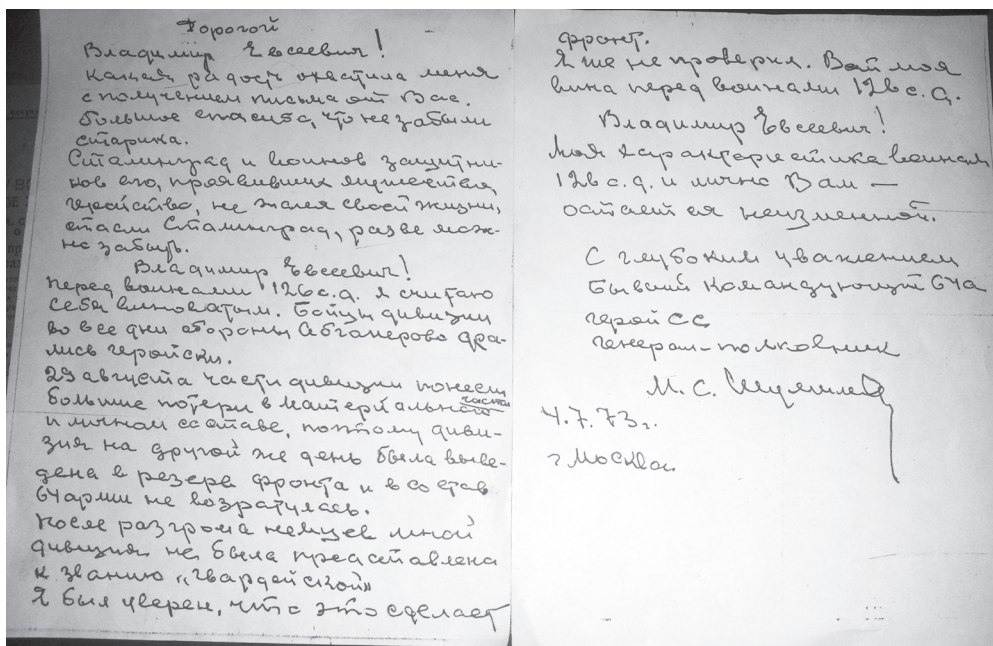 Дорогой
Владимир Евсеевич!
Какая радость охватила меня
с получением письма от Вас.
большое спасибо, что не забыли
старика.
Сталинград и воинов защитни-
ков его, проявивших мужество,
геройство, не жалея своей жизни,
спасли Сталинград, разве мож-
но забыть.
Владимир Евсеевич!
Перед воинами 126 с.д. я считаю
себя виноватым. Бойцы дивизии
во все дни обороны Абганерово дра-
лись геройски.
29 августа части дивизии понесли
большие потери в материальной
части
и личном составе, поэтому диви-
зия на другой же день была выве-
дена в резерв фронта и в состав
64 арми не возратилась.
После разгрома немцев мной
дивизия не была представлена
к званию "Гвардейской"
Я был уверен, что это сделает
фронт.
Я же не проверил. Вот моя
вина перед воинами 126 с.д.
Владимир Евсеевич!
Моя характеристика воинам
126 с.д. и лично Вам —
остается неизменной.
С глубоким уважением
Бывший Командующий 64А
герой СС
генерал-полковник
М. С. Шумилов
4.7.73 г.
г Москва.